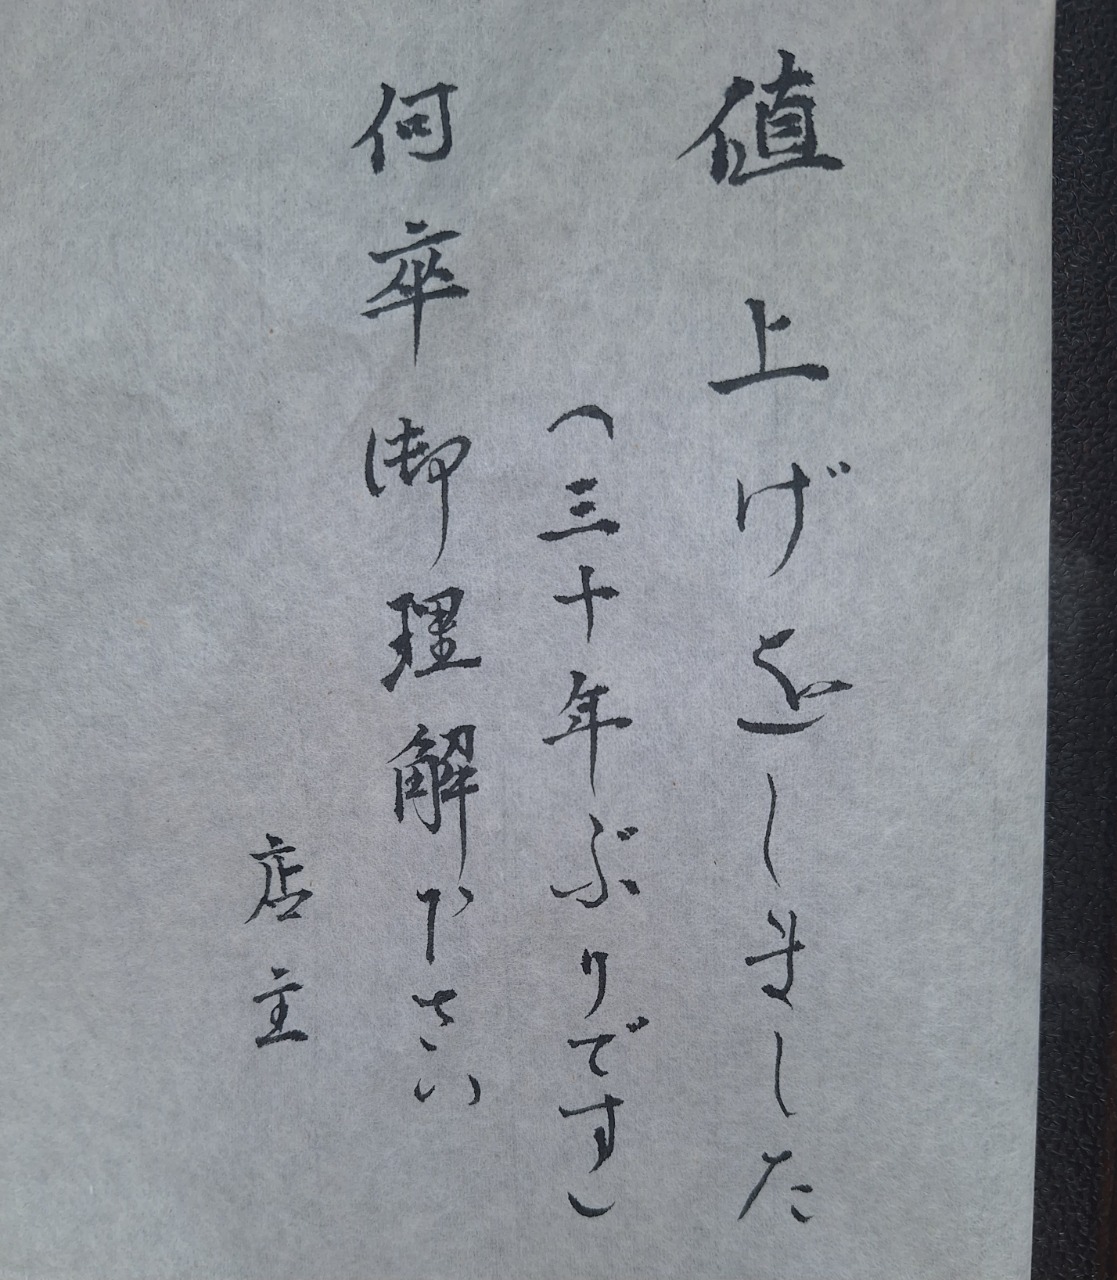 値上げをしました
(三十年ぶりです)
何卒御理解下さい
店主